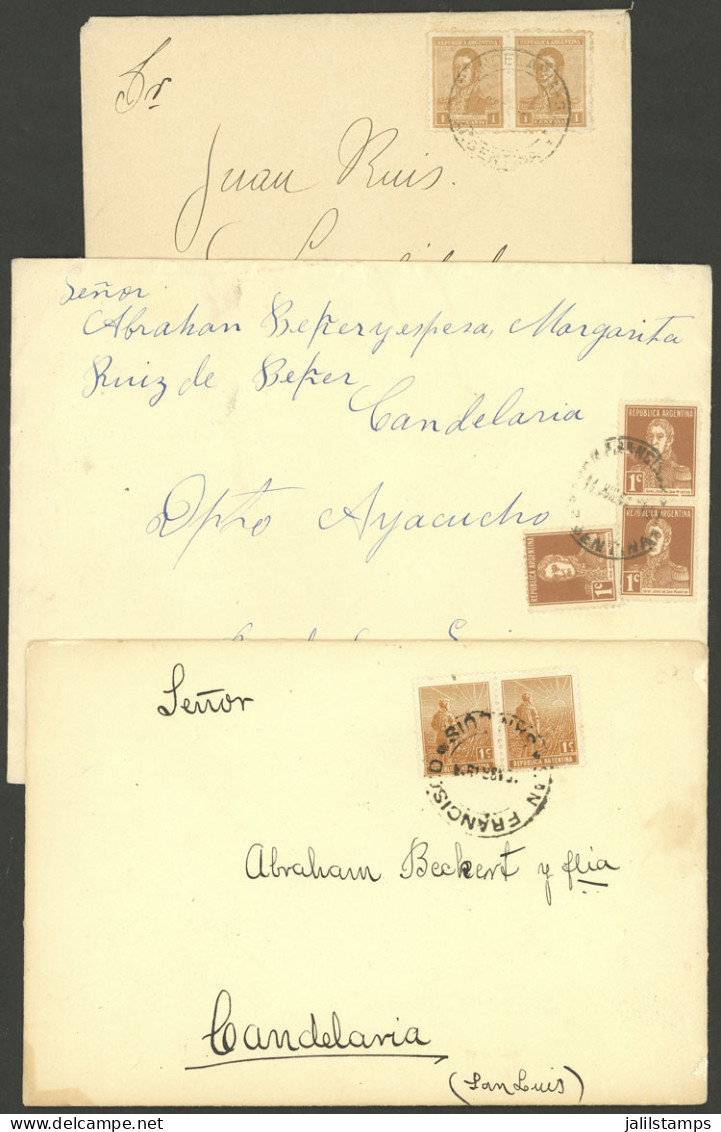 REPUBLICA ARGENTINA REPUBLICA ARGENTINA
1 1 1 1
CENTAVO
Sr
Juan Ruis.
Señor
Abrahan Beker y espesa, Margarita
Ruiz de Beker
Candelaria
Dpto Ayacucho
REPUBLICA ARGENTINA
1c
REPUBLICA ARGENTINA
1c
REPUBLICA ARGENTINA
1c
ARGENTINA
Señor
1c 1c
REPUBLICA ARGENTINA
SAN LUIS
SAN FRANCISCO
Abraham Beckert y flia
Candelaria
(San Luis)
www.delcampe.net
jalilstamps